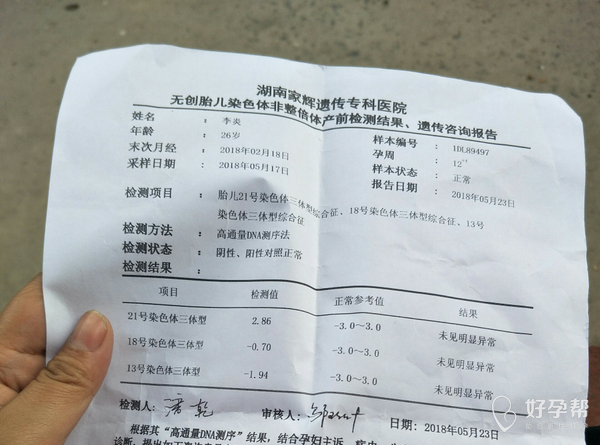 湖南家辉遗传专科医院
无创胎儿染色体非整倍体产前检测结果、遗传咨询报告
姓名 : 李炎 样本编号 : 1DL89497
年龄 : 26岁 孕周 : 12⁺¹
末次月经 : 2018年02月18日 样本状态 : 正常
采样日期 : 2018年05月17日 报告日期 : 2018年05月23日
检测项目 : 胎儿21号染色体三体型综合征、18号染色体三体型综合征、13号
染色体三体型综合征
检测方法 : 高通量DNA测序法
检测状态 : 阴性、阳性对照正常
检测结果 :
项目 检测值 正常参考值 结果
21号染色体三体型 2.86 -3.0~3.0 未见明显异常
18号染色体三体型 -0.70 -3.0~3.0 未见明显异常
13号染色体三体型 -1.94 -3.0~3.0 未见明显异常
检测人: 审核人: 日期: 2018年05月23日
根据其“高通量DNA测序”结果,结合孕妇主诉、
好孕帮